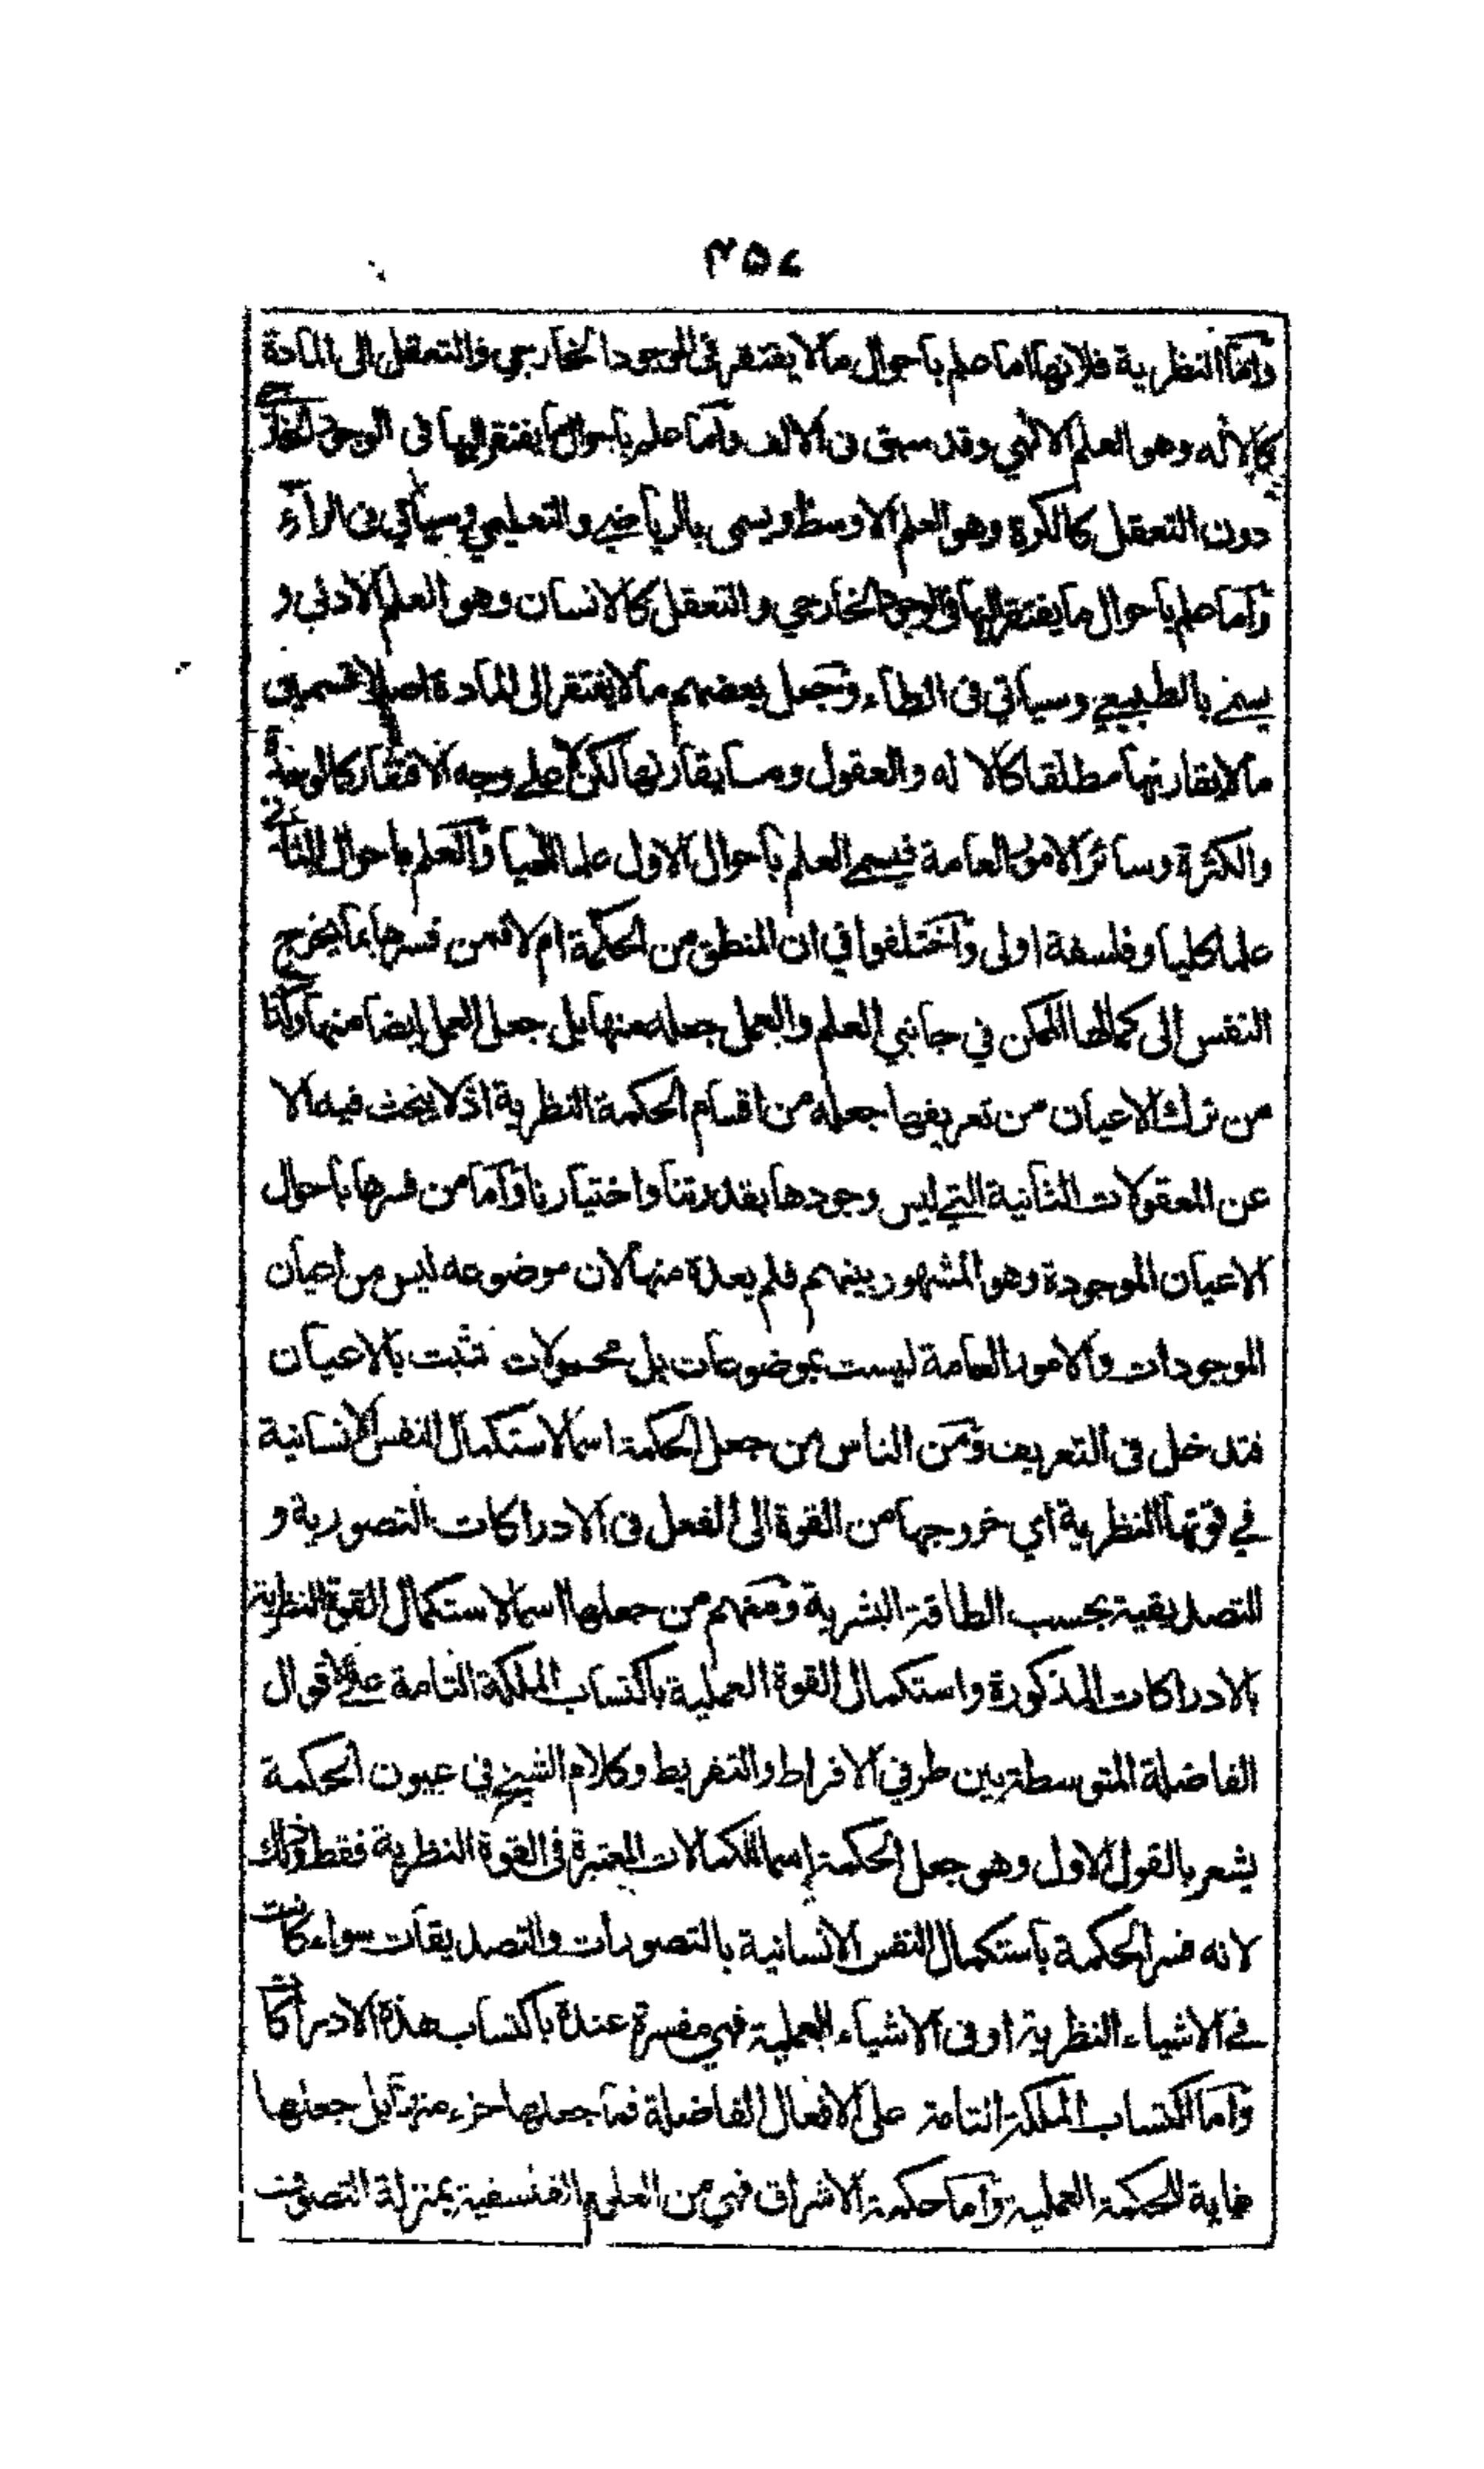 ٢٥٤
واما النظرية فلانها اما علم باحوال ما لا يفتقر فى الوجود الخارجي والتعقل الى المادة
كالاله وهو العلم الالهي وقد سبق فى الالف واما علم باحوال ما يفتقر اليها فى الوجود الخارجي
دون التعقل كالكرة وهو العلم الاوسط ويسمى بالرياضي والتعليمي وسيأتي فى الراء
واما علم باحوال ما يفتقر اليها فى الوجود الخارجي والتعقل كالانسان وهو العلم الادنى و
يسمى بالطبيعي وسياتي فى الطاء وجعل بعضهم ما لا يفتقر الى المادة اصلا قسمين
ما لا يقارنها مطلقا كالاله والعقول وما يقارنها لكن لا على وجه الافتقار كالوحدة
والكثرة وسائر الامور العامة فيسمى العلم باحوال الاول علما الهيا والعلم باحوال الثاني
علما كليا وفلسفة اولى واختلفوا في ان المنطق من الحكمة ام لا فمن فسرها بما يخرج
النفس الى كمالها الممكن في جانبي العلم والعمل جعله منها بل جعل العمل ايضا منها وكذا
من ترك الاعيان من تعريفها جعله من اقسام الحكمة النظرية اذ لا يبحث فيه الا
عن المعقولات الثانية التي ليس وجودها بقدرتنا واختيارنا واما من فسرها باحوال
الاعيان الموجودة وهو المشهور بينهم فلم يعده منها لان موضوعه ليس من اعيان
الموجودات والامور العامة ليست بموضوعات بل محمولات تثبت بالاعيان
فتدخل فى التعريف ومن الناس من جعل الحكمة اسما لاستكمال النفس الانسانية
في قوتها النظرية اي خروجها من القوة الى الفعل فى الادراكات التصورية و
التصديقية بحسب الطاقة البشرية ومنهم من جعلها اسما لاستكمال القوة النظرية
بالادراكات المذكورة واستكمال القوة العملية باكتساب الملكة التامة على الاقوال
الفاضلة المتوسطة بين طرفي الافراط والتفريط وكلام الشيخ في عيون الحكمة
يشعر بالقول الاول وهو جعل الحكمة اسما للكمالات المعتبرة فى القوة النظرية فقط وذلك
لانه فسر الحكمة باستكمال النفس الانسانية بالتصورات والتصديقات سواء كانت
فى الاشياء النظرية او فى الاشياء العملية فهي مفسرة عنده باكتساب هذه الادراكات
واما اكتساب الملكة التامة على الافعال الفاضلة فما جعلها جزء منها بل جعلها
غاية للحكمة العملية واما حكمة الاشراق فهي من العلوم الفلسفية بمنزلة التصوف